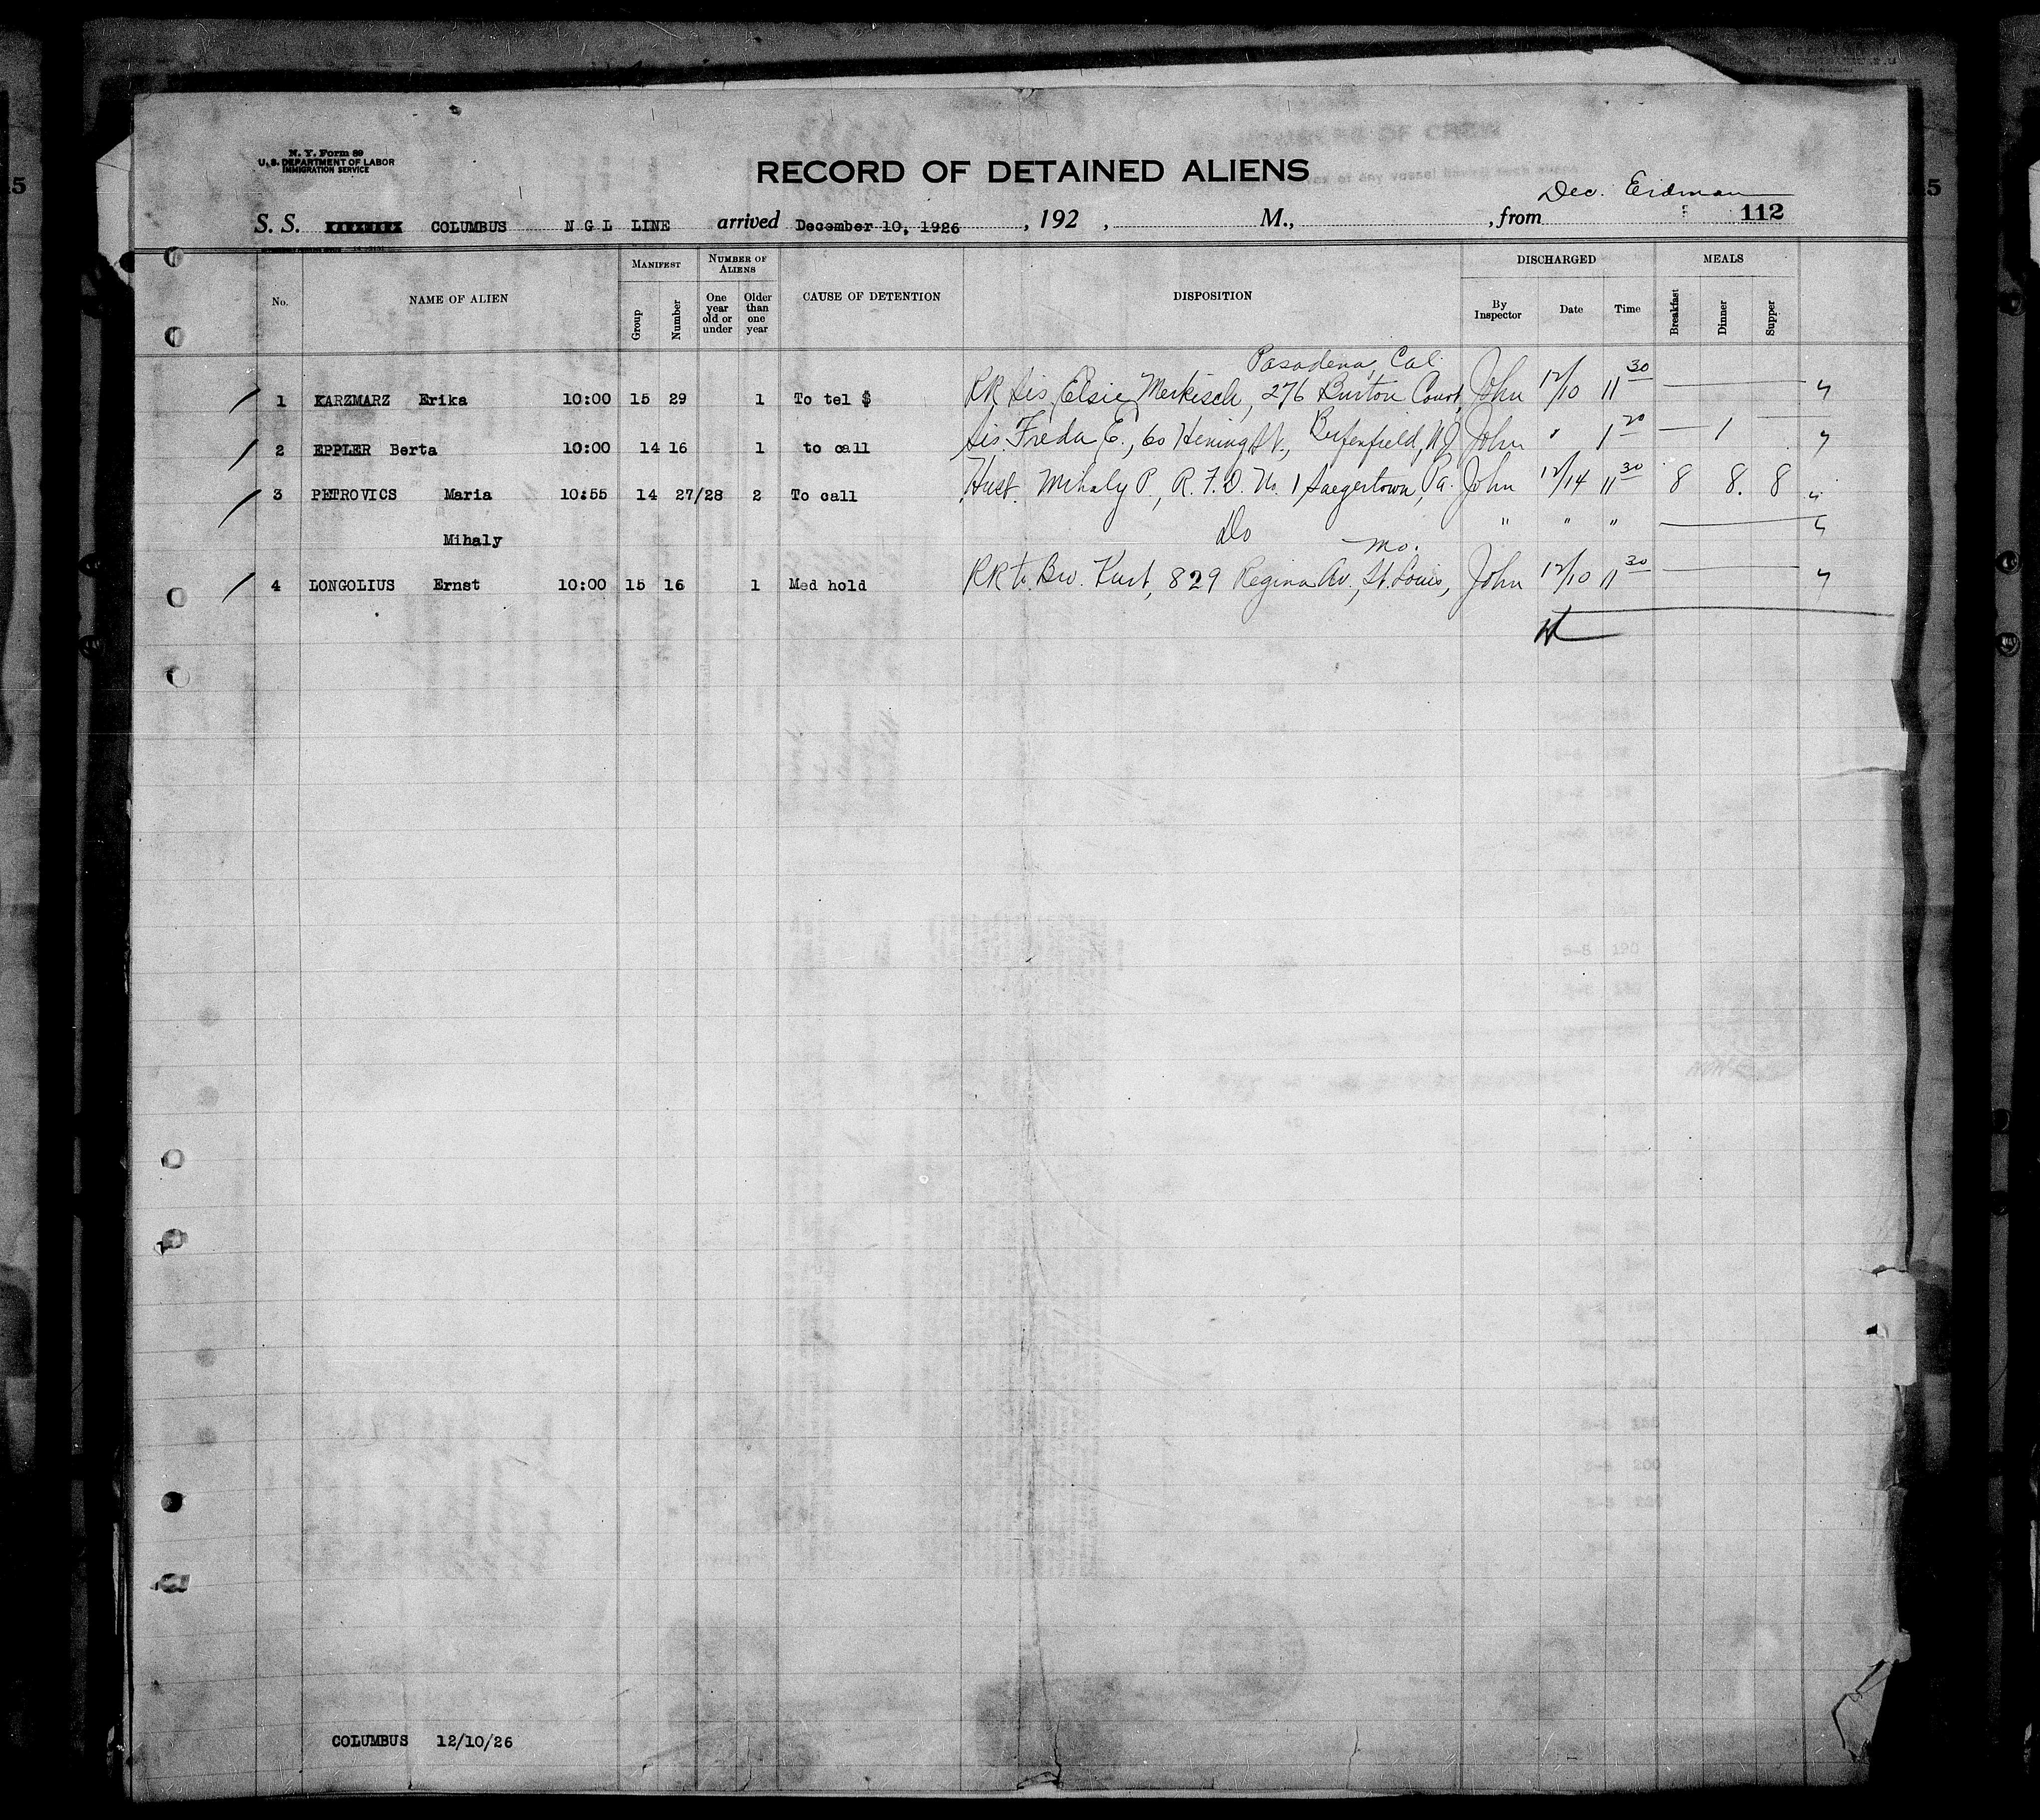 N. Y. Form 89
U. S. DEPARTMENT OF LABOR
IMMIGRATION SERVICE
RECORD OF DETAINED ALIENS
Dec. Eidman
S. S. COLUMBUS N G L LINE arrived December 10, 1926, 192 , M., , from 112
No. NAME OF ALIEN MANIFEST Group Number NUMBER OF ALIENS One year old or under Older than one year CAUSE OF DETENTION DISPOSITION DISCHARGED By Inspector Date Time MEALS Breakfast Dinner Supper
Pasadena, Cal.
1 KARZMARZ Erika 10:00 15 29 1 To tel $ RR Sis Elsie Merkisch, 276 Burton Court, John 12/10 11 30
2 EPPLER Berta 10:00 14 16 1 to call Sis. Freda E., 60 St., N.J. John " 1 20 1
3 PETROVICS Maria 10:55 14 27/28 2 To call Husb. Mihaly P., R. F. D. No. 1 Saegertown, Pa. John 12/14 11 30 8 8. 8
Mihaly Do " " "
Mo.
4 LONGOLIUS Ernst 10:00 15 16 1 Med hold RR to Bro. Kurt, 829 Regina Av., St. Louis, John 12/10 11 30
COLUMBUS 12/10/26